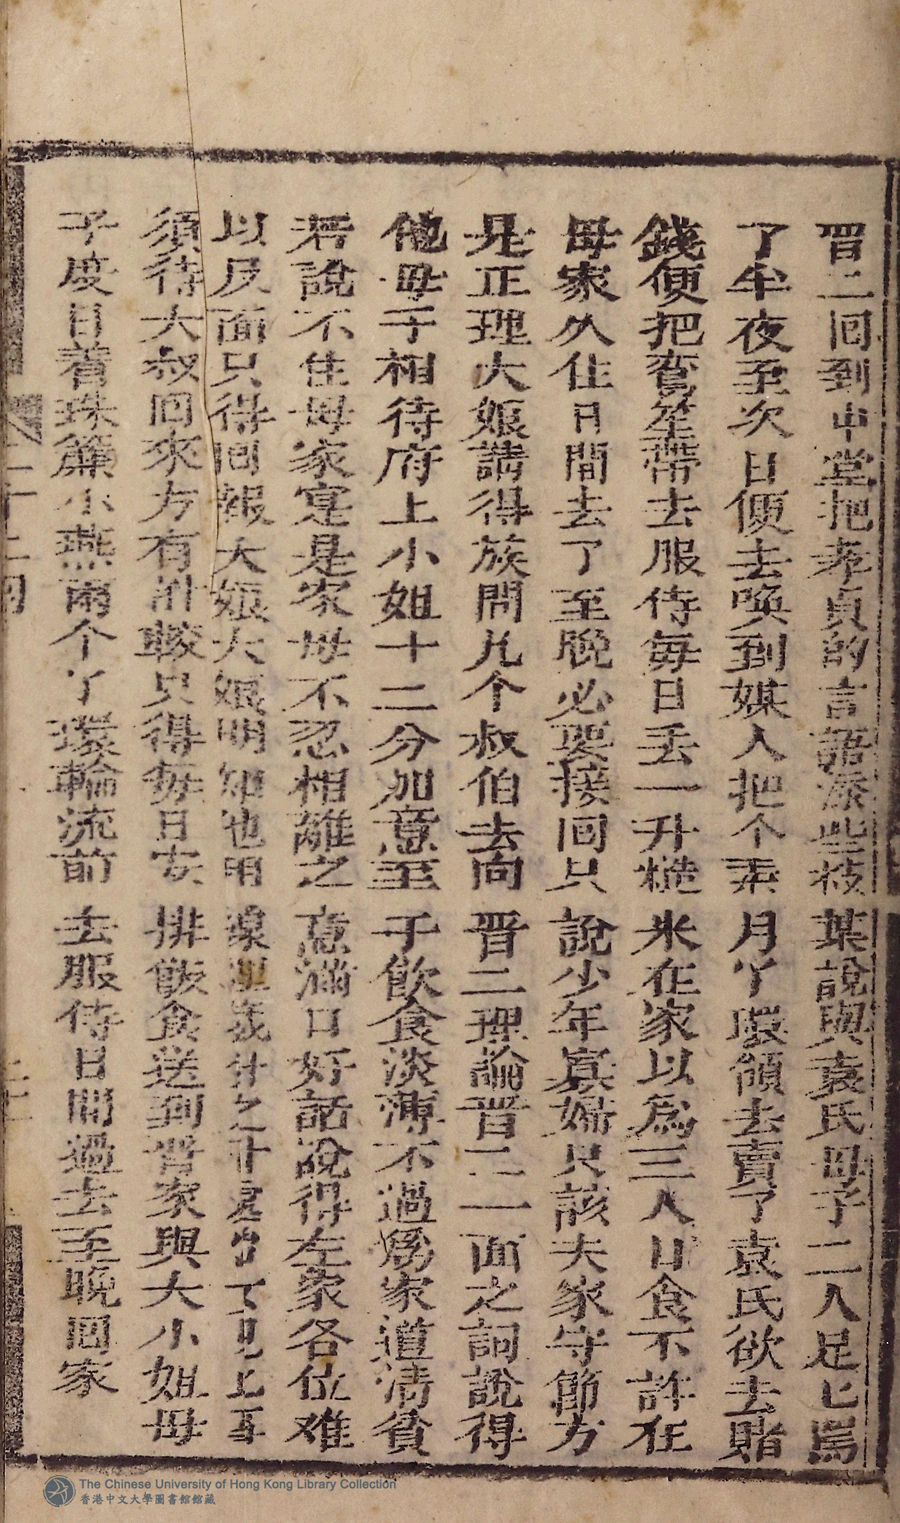 晋二回到中堂把孝貞的言語添些枝葉說與袁氏母子二人足七罵
了半夜至次日便去喚到媒人把个素月丫環領去賣了袁氏欲去賭
錢便把鸞笙帶去服侍每日丢一升糙米在家以為三人日食不許在
母家久住日間去了至晚必要接回只說少年寡婦只該夫家守節方
是正理大娘請得族間九个叔伯去向晋二理論晋二一面之詞說得
他母子相待府上小姐十二分加意至于飲食淡薄不過為家道清貧
若說不住母家寔是家母不忍相離之意滿口好話說得左家各位难
以反面只得回報大娘大娘明知他
須待大叔回來方有計較只得每日安排飯食送到晋家與大小姐母
子度日着珠簾小燕兩个丫環輪流前去服侍日間過去至晚回家
二十二回
The Chinese University of Hong Kong Library Collection
香港中文大學圖書館館藏